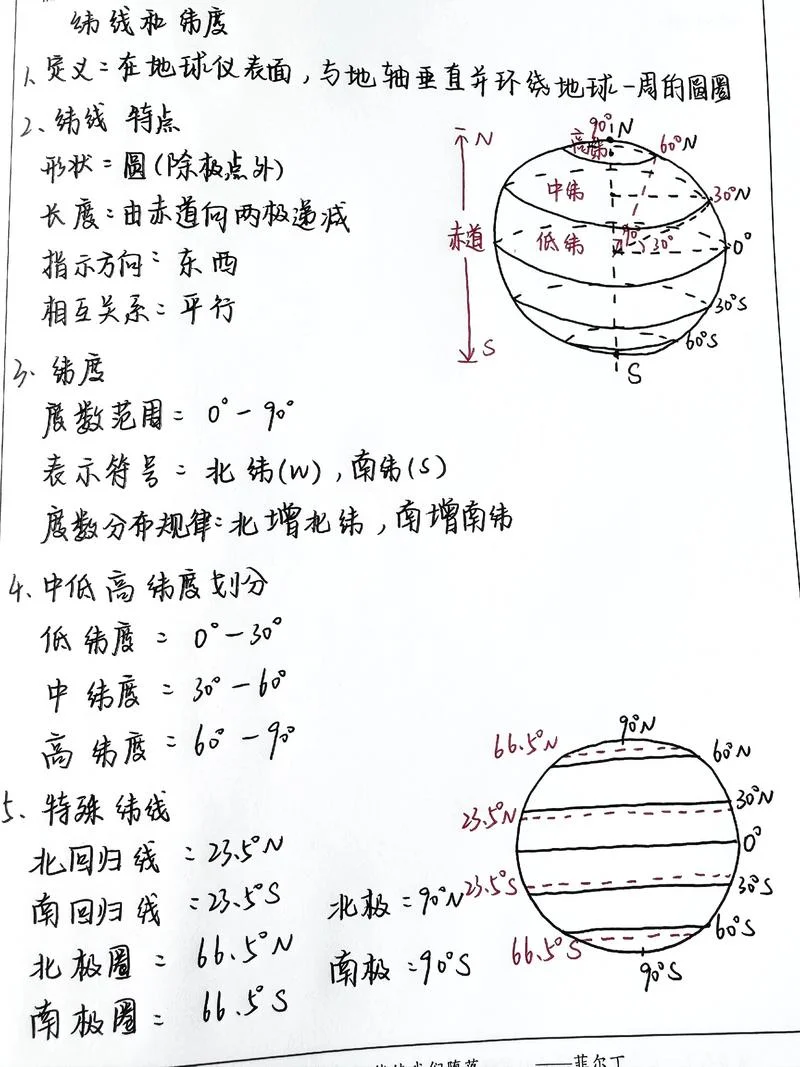 纬线和纬度
1、定义：在地球仪表面，与地轴垂直并环绕地球一周的圆圈
2、纬线 特点
形状：圆(除极点外)
长度：由赤道向两极递减
指示方向：东西
相互关系：平行
90°N
高纬
60°N
N
中纬
30°N
赤道
低纬
90°
30°
0°
30°S
60°S
S
S
3、纬度
度数范围：0°-90°
表示符号：北纬(W)，南纬(S)
度数分布规律：北增北纬，南增南纬
4、中低高纬度划分
低纬度：0°-30°
中纬度：30°-60°
高纬度：60°-90°
5、特殊纬线
北回归线：23.5°N
南回归线：23.5°S
北极圈：66.5°N
南极圈：66.5°S
北极：90°N
南极：90°S
90°N
66.5°N
60°N
30°N
23.5°N
0°
23.5°S
30°S
60°S
66.5°S
90°S
——菲尔丁